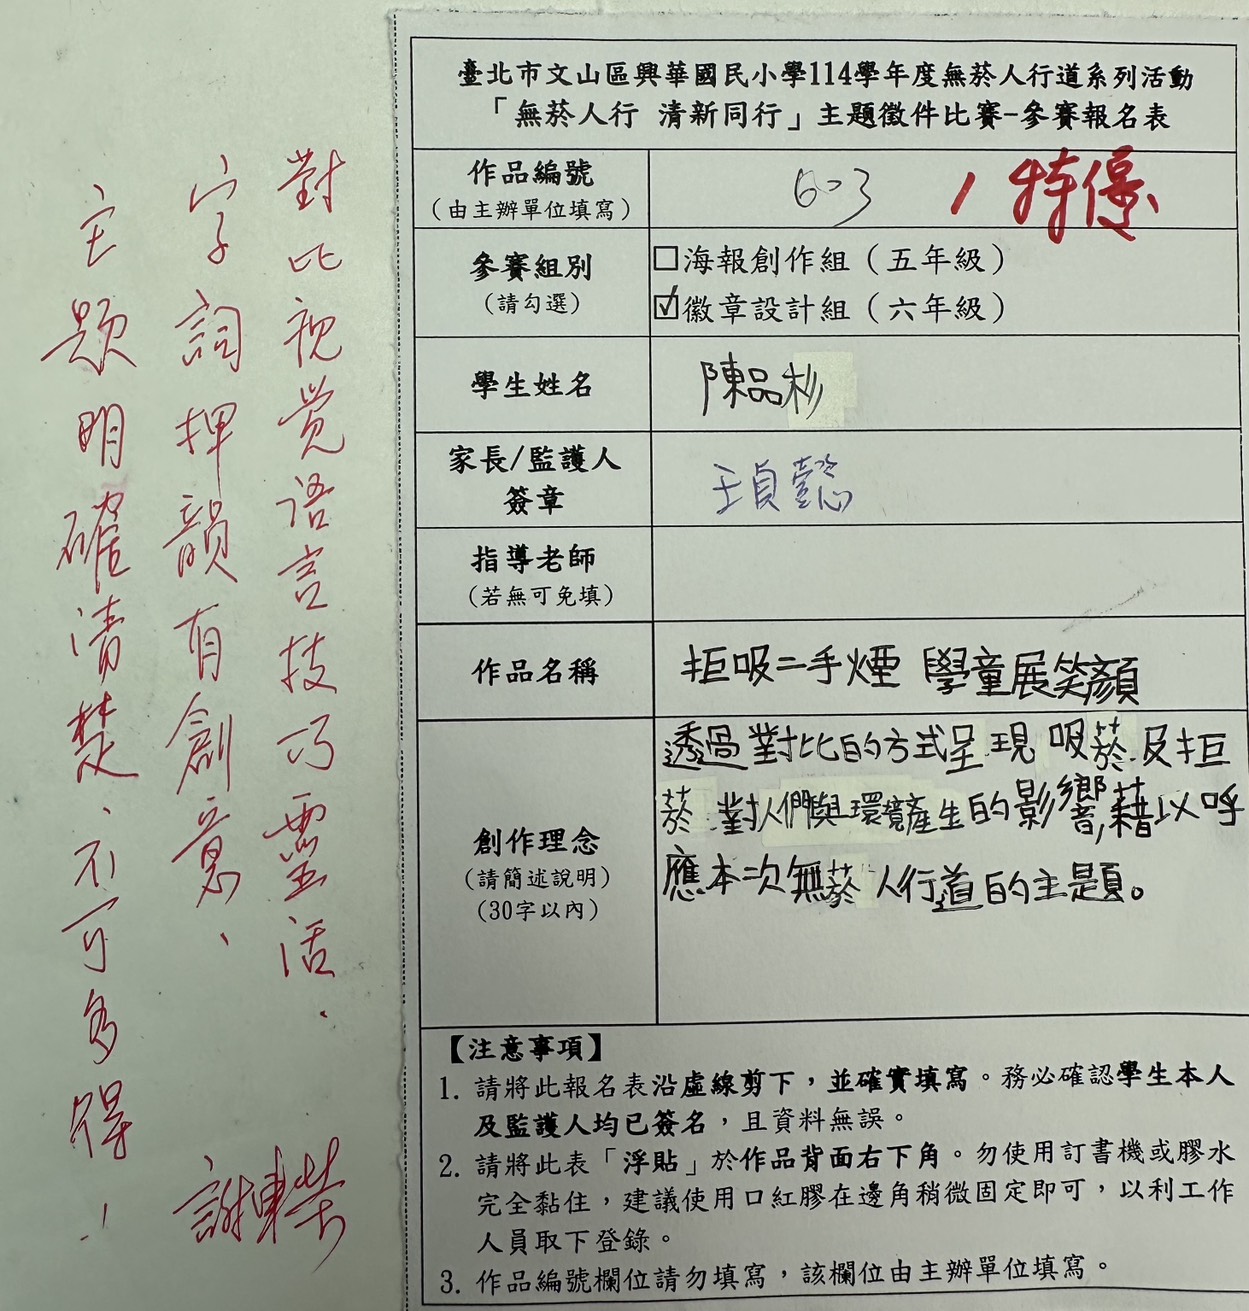 臺北市文山區興華國民小學114學年度無菸人行道系列活動
「無菸人行 清新同行」主題徵件比賽-參賽報名表
作品編號
(由主辦單位填寫)
603
1 特優
參賽組別
(請勾選)
□海報創作組(五年級)
☑徽章設計組(六年級)
學生姓名
陳品杉
家長/監護人
簽章
王貞懿
指導老師
(若無可免填)
作品名稱
拒吸二手煙 學童展笑顏
創作理念
(請簡述說明)
(30字以內)
透過對比的方式呈現吸菸及拒
菸對人們與環境產生的影響,藉以呼
應本次無菸人行道的主題。
【注意事項】
1. 請將此報名表沿虛線剪下,並確實填寫。務必確認學生本人
及監護人均已簽名,且資料無誤。
2. 請將此表「浮貼」於作品背面右下角。勿使用訂書機或膠水
完全黏住,建議使用口紅膠在邊角稍微固定即可,以利工作
人員取下登錄。
3. 作品編號欄位請勿填寫,該欄位由主辦單位填寫。
對比視覺语言技巧靈活.
字詞押韻有創意、
主題明確清楚、不可多得!
謝東